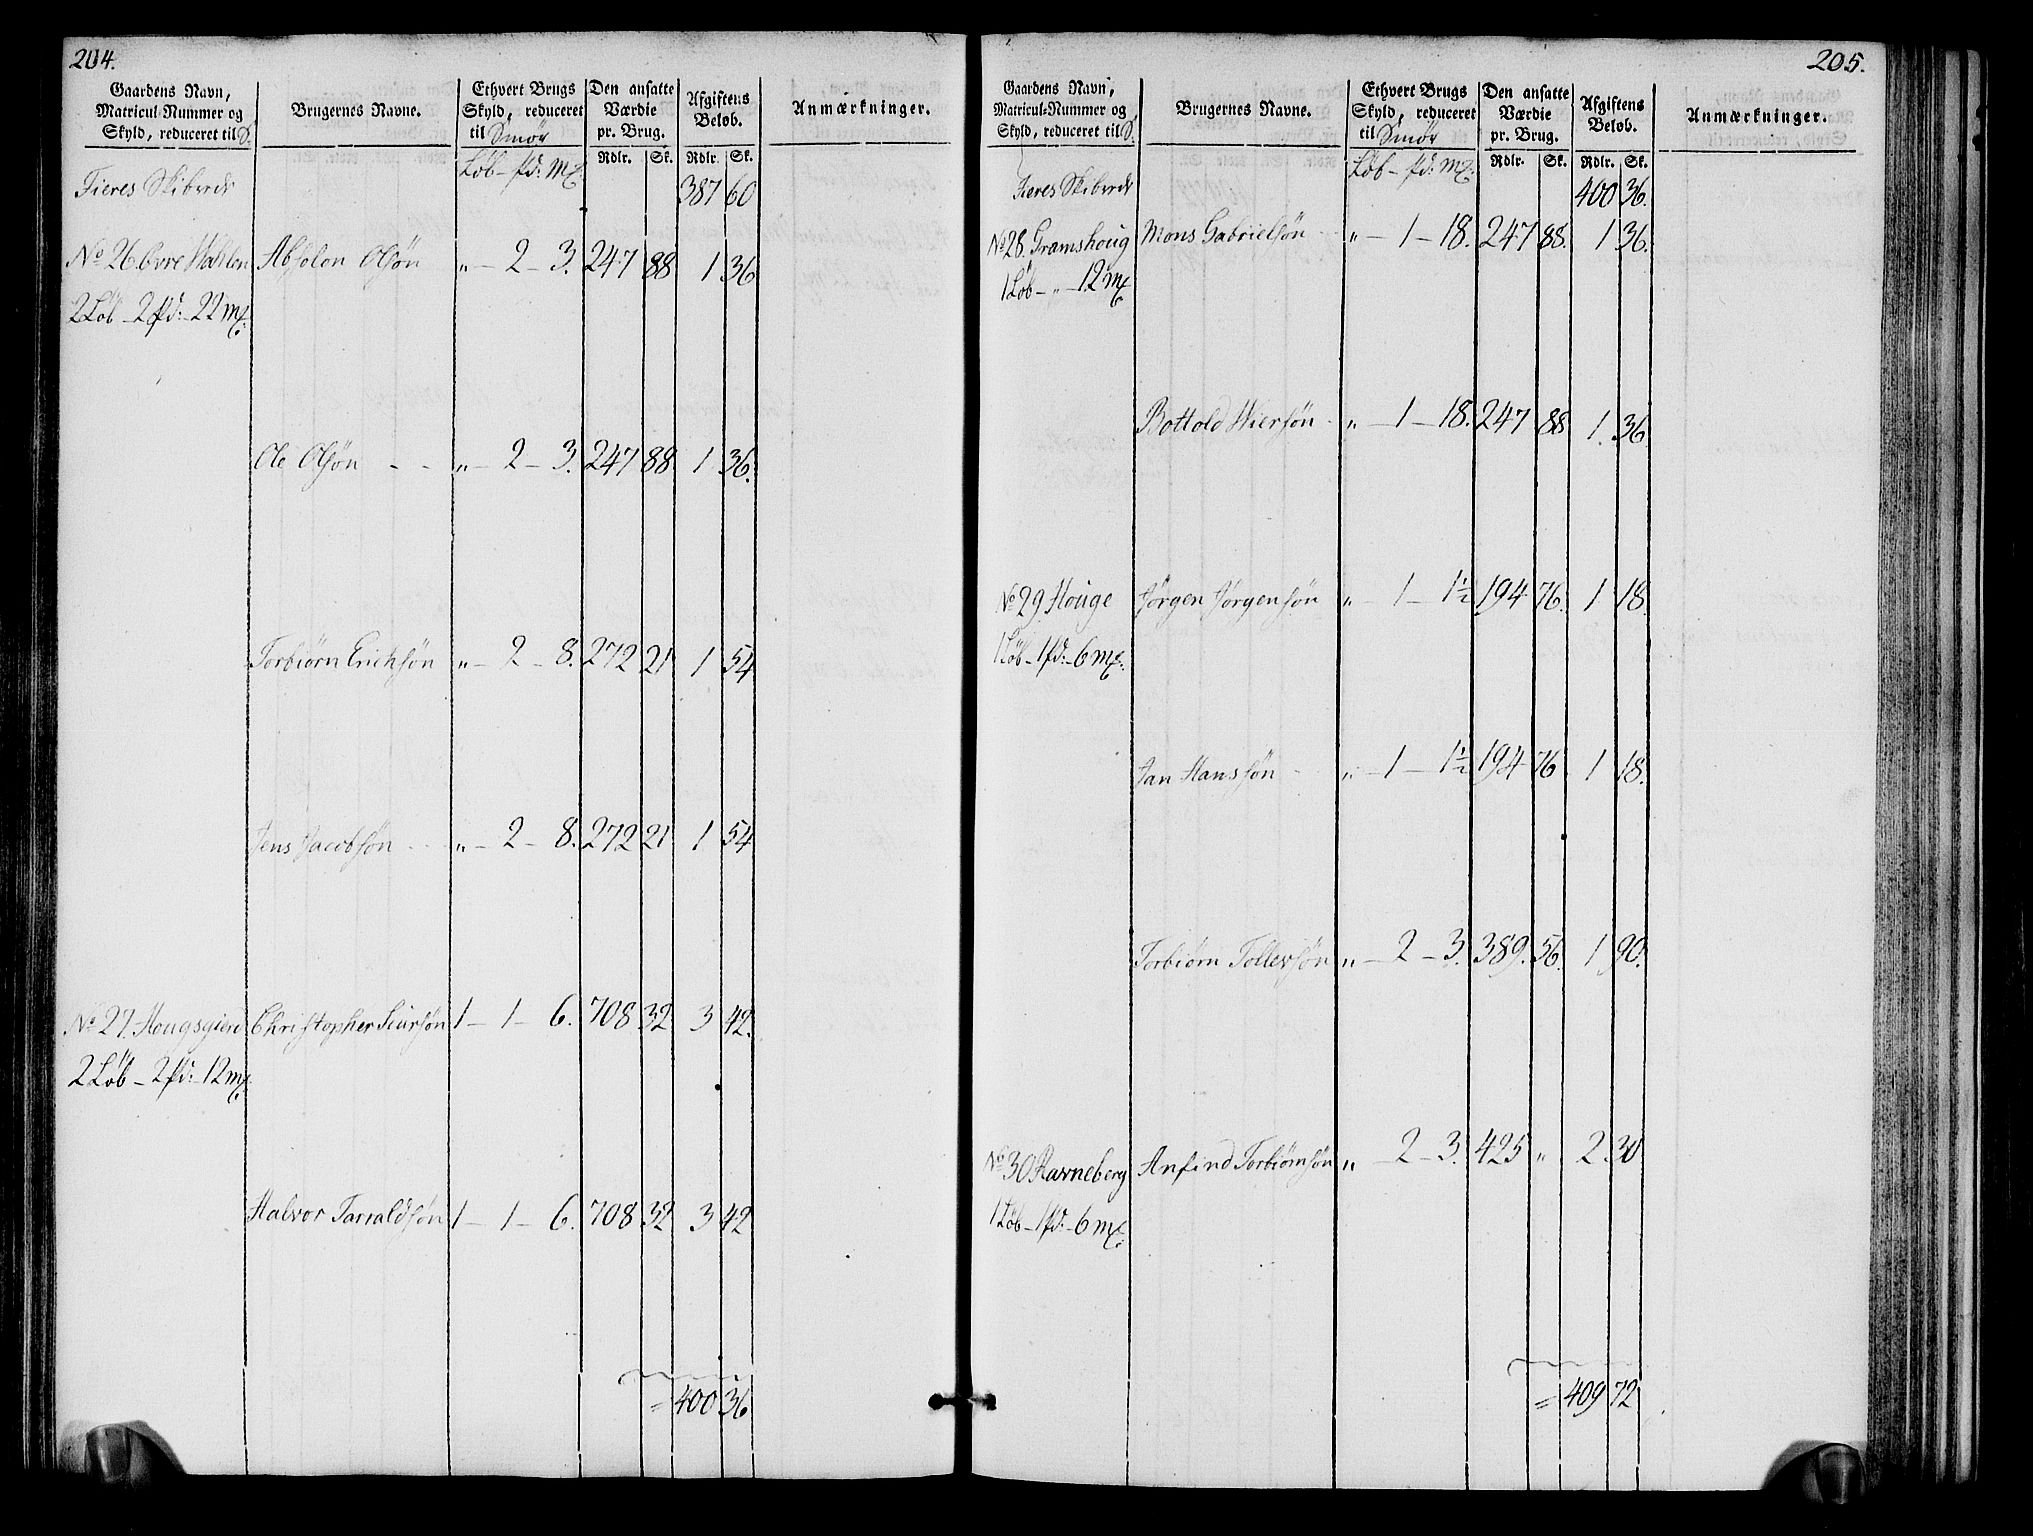 204.
Gaardens Navn, Matricul-Nummer og Skyld, reduceret til S. | Brugernes Navne. | Ethvert Brugs Skyld, reduceret til Smör | Den ansatte Værdie pr. Brug. | Afgiftens Beløb. | Anmærkninger.
Løb - pd: mk: | Rdlr. | Sk. | Rdlr. | Sk.
Fieres Skibrede 387 60
No 26. Øvre Hatlen Absolon Olsøn „ - 2 - 3. 247 88 1 36
2 Løb - 2 pd: - 22 mk:
Ole Olsøn - - „ - 2 - 3. 247 88 1 36.
Torbiørn Erichsøn „ - 2 - 8. 272 21 1 54
Jens Jacobsøn - - „ - 2 - 8. 272 21 1 54
No 27. Hougsgierd Christopher Siursøn 1 - 1 - 6. 708 32 3 42.
2 Løb - 2 pd: - 12 mk:
Halvor Tarraldsøn 1 - 1 - 6. 708 32 3 42
= 400 36
205.
Gaardens Navn, Matricul-Nummer og Skyld, reduceret til S. | Brugernes Navne. | Ethvert Brugs Skyld, reduceret til Smör | Den ansatte Værdie pr. Brug. | Afgiftens Beløb. | Anmærkninger.
Løb - pd: mk: | Rdlr. | Sk. | Rdlr. | Sk.
Fieres Skibrede 400 36.
No 28. Gramshoug Mons Gabrielsøn - „ - 1 - 18. 247 88. 1 36.
1 Løb - „ - 12 mk
Bottold Wiersøn - „ - 1 - 18. 247 88 1. 36
No 29. Houge Jørgen Jørgensøn „ - 1 - 1½ 194 76. 1 18.
1 Løb - 1 pd: - 6 mk:
Jan Hanssøn - „ - 1 - 1½ 194 76 1 18.
Torbiørn Tollevsøn „ - 2 - 3. 389. 56. 1 90.
No 30 Ravneberg Anfind Torbiørnsøn „ - 2 - 3. 425 „ 2 30
1 Løb - 1 pd: - 6 mk:
= 409 72